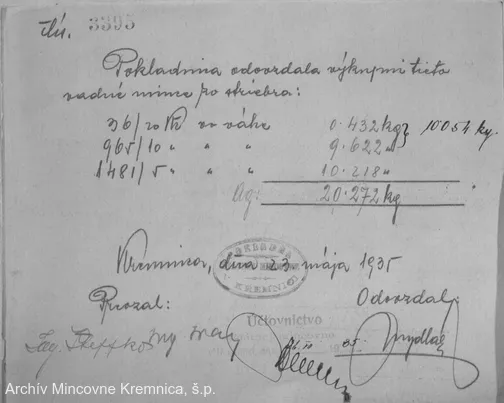 čís. 3395
Pokladnica odovzdala výkupni tieto
vadné mince zo striebra:
36/20 Kč vo váhe 0.432 kg } 10054 kg.
965/10 " " " 9.622 "
1481/5 " " " 10.218 "
Ag: 20.272 kg
Kremnica, dňa 23. mája 1935
KREMNICI
Prevzal: Odovzdal:
Účtovníctvo
Ing.
Archív Mincovne Kremnica, š.p.